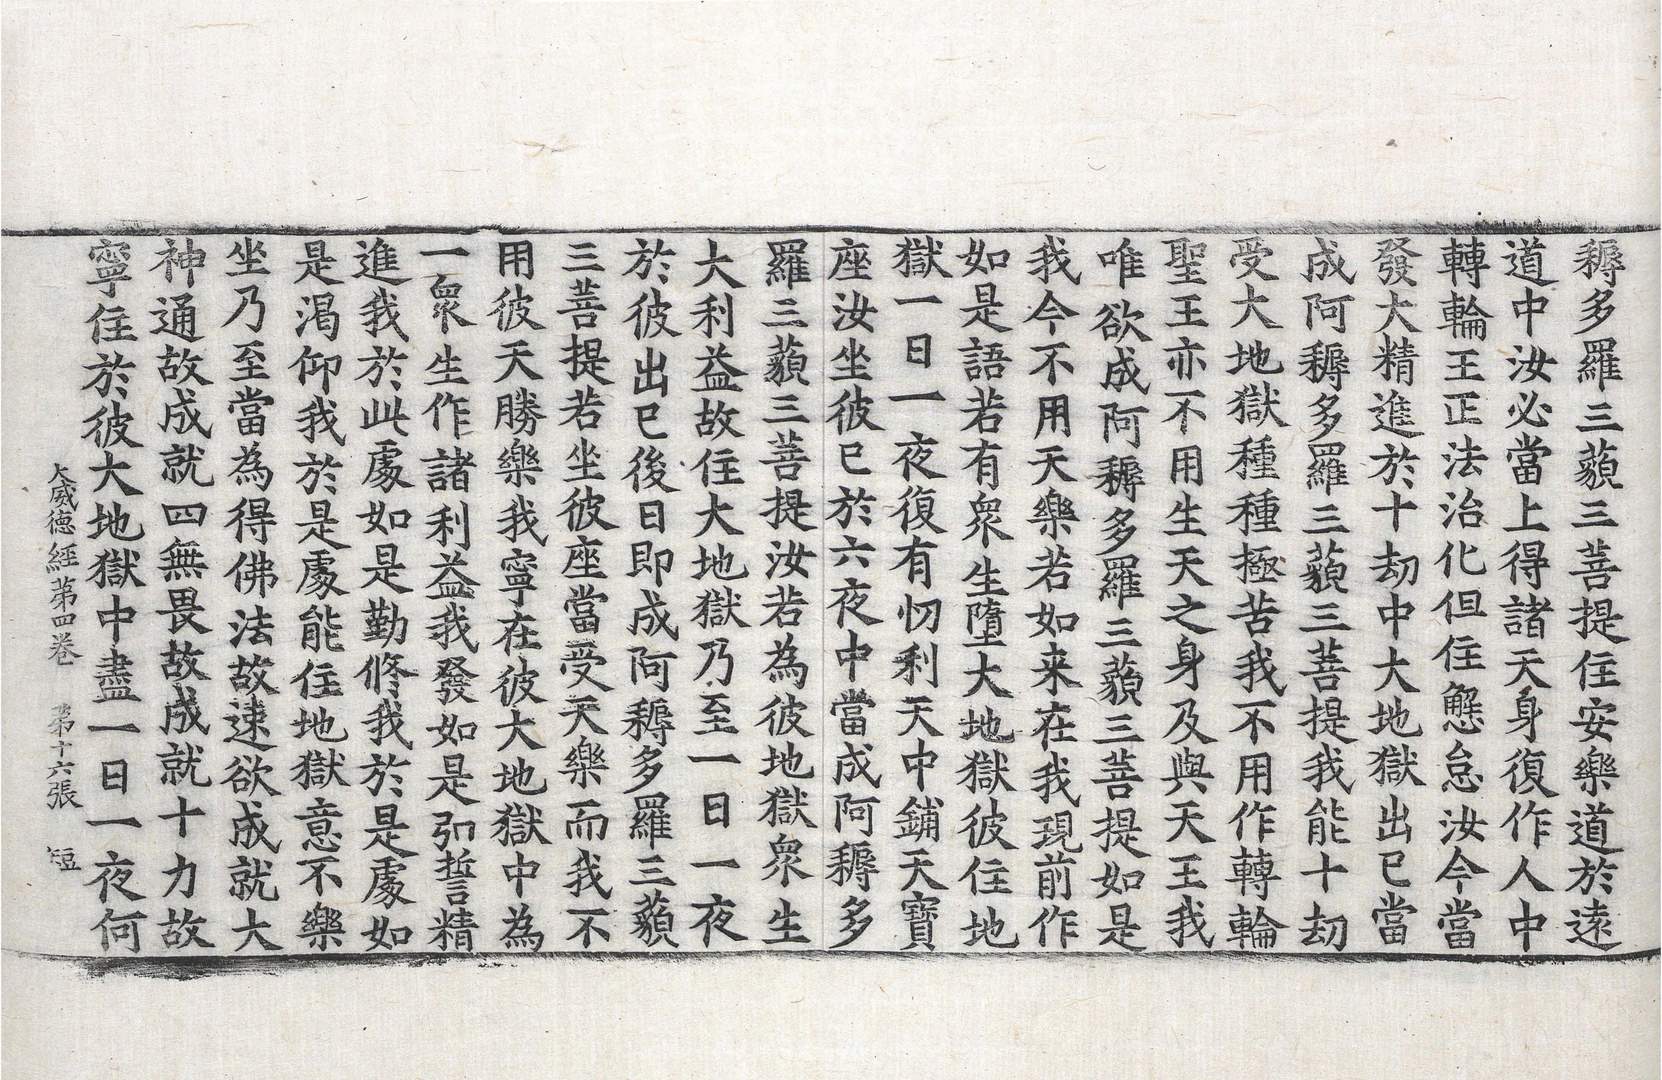 耨多羅三藐三菩提住安樂道於遠
道中汝必當上得諸天身復作人中
轉輪王正法治化但住懈怠汝今當
發大精進於十劫中大地獄出已當
成阿耨多羅三藐三菩提我能十劫
受大地獄種種極苦我不用作轉輪
聖王亦不用生天之身及與天王我
唯欲成阿耨多羅三藐三菩提如是
我今不用天樂若如来在我現前作
如是語若有衆生墮大地獄彼住地
獄一日一夜復有忉利天中鋪天寶
座汝坐彼已於六夜中當成阿耨多
羅三藐三菩提汝若為彼地獄衆生
大利益故住大地獄乃至一日一夜
於彼出已後日即成阿耨多羅三藐
三菩提若坐彼座當受天樂而我不
用彼天勝樂我寧在彼大地獄中為
一衆生作諸利益我發如是弘誓精
進我於此處如是勤修我於是處如
是渴仰我於是處能住地獄意不樂
坐乃至當為得佛法故速欲成就大
神通故成就四無畏故成就十力故
寧住於彼大地獄中盡一日一夜何
大威德經第四卷　第十六張　短